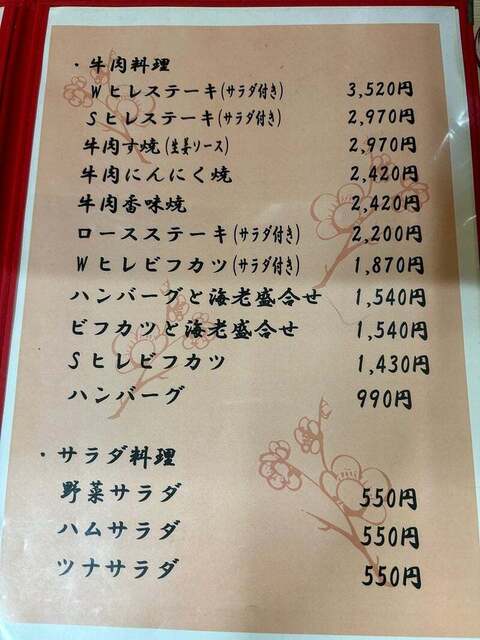 ・牛肉料理
Wヒレステーキ(サラダ付き) 3,520円
Sヒレステーキ(サラダ付き) 2,970円
牛肉す焼(生姜ソース) 2,970円
牛肉にんにく焼 2,420円
牛肉香味焼 2,420円
ロースステーキ(サラダ付き) 2,200円
Wヒレビフカツ(サラダ付き) 1,870円
ハンバーグと海老盛合せ 1,540円
ビフカツと海老盛合せ 1,540円
Sヒレビフカツ 1,430円
ハンバーグ 990円
・サラダ料理
野菜サラダ 550円
ハムサラダ 550円
ツナサラダ 550円